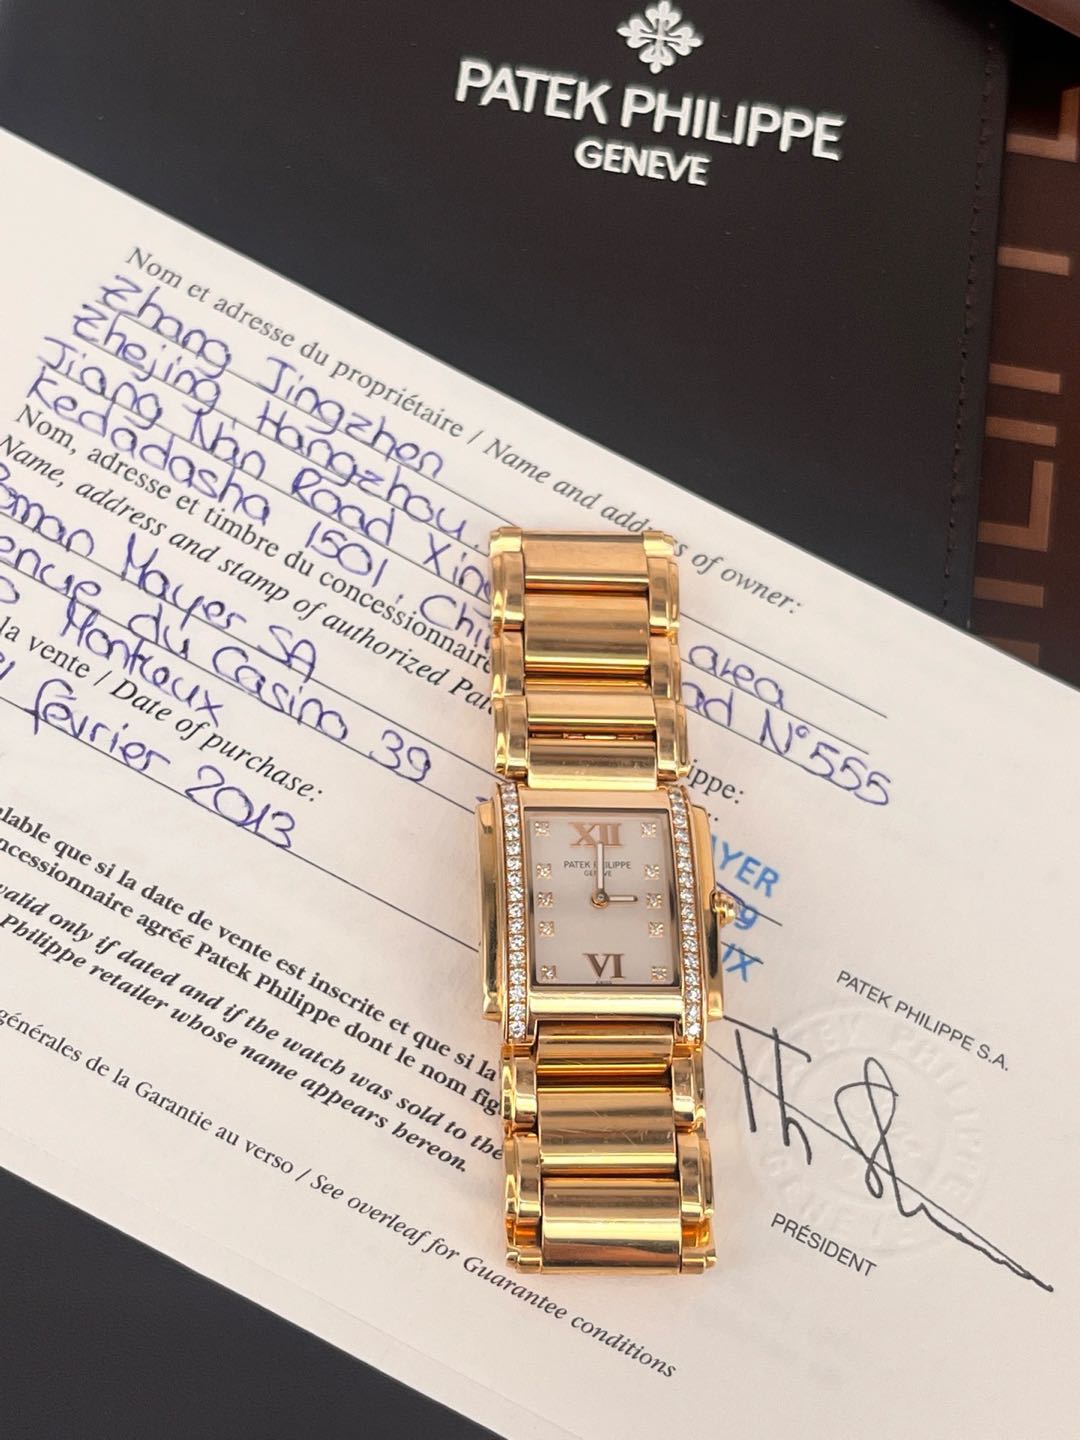 PATEK PHILIPPE
GENEVE
Nom et adresse du propriétaire / Name and address of owner:
Zhang Jingzhen
Zhejing Hangzhou
Jiang Nan Road Xing area
Kedadasha 1501, Chi ad N°555
Nom, adresse et timbre du concessionnaire ippe:
Name, address and stamp of authorized Pat
Roman Mayer SA
enue du Casino 39
Montreux
la vente / Date of purchase:
février 2013
YER
39
UX
XII
PATEK PHILIPPE
GENEVE
VI
lable que si la date de vente est inscrite et que si la
ncessionnaire agréé Patek Philippe dont le nom fig
valid only if dated and if the watch was sold to the
Philippe retailer whose name appears hereon.
générales de la Garantie au verso / See overleaf for Guarantee conditions
PATEK PHILIPPE S.A.
PRÉSIDENT